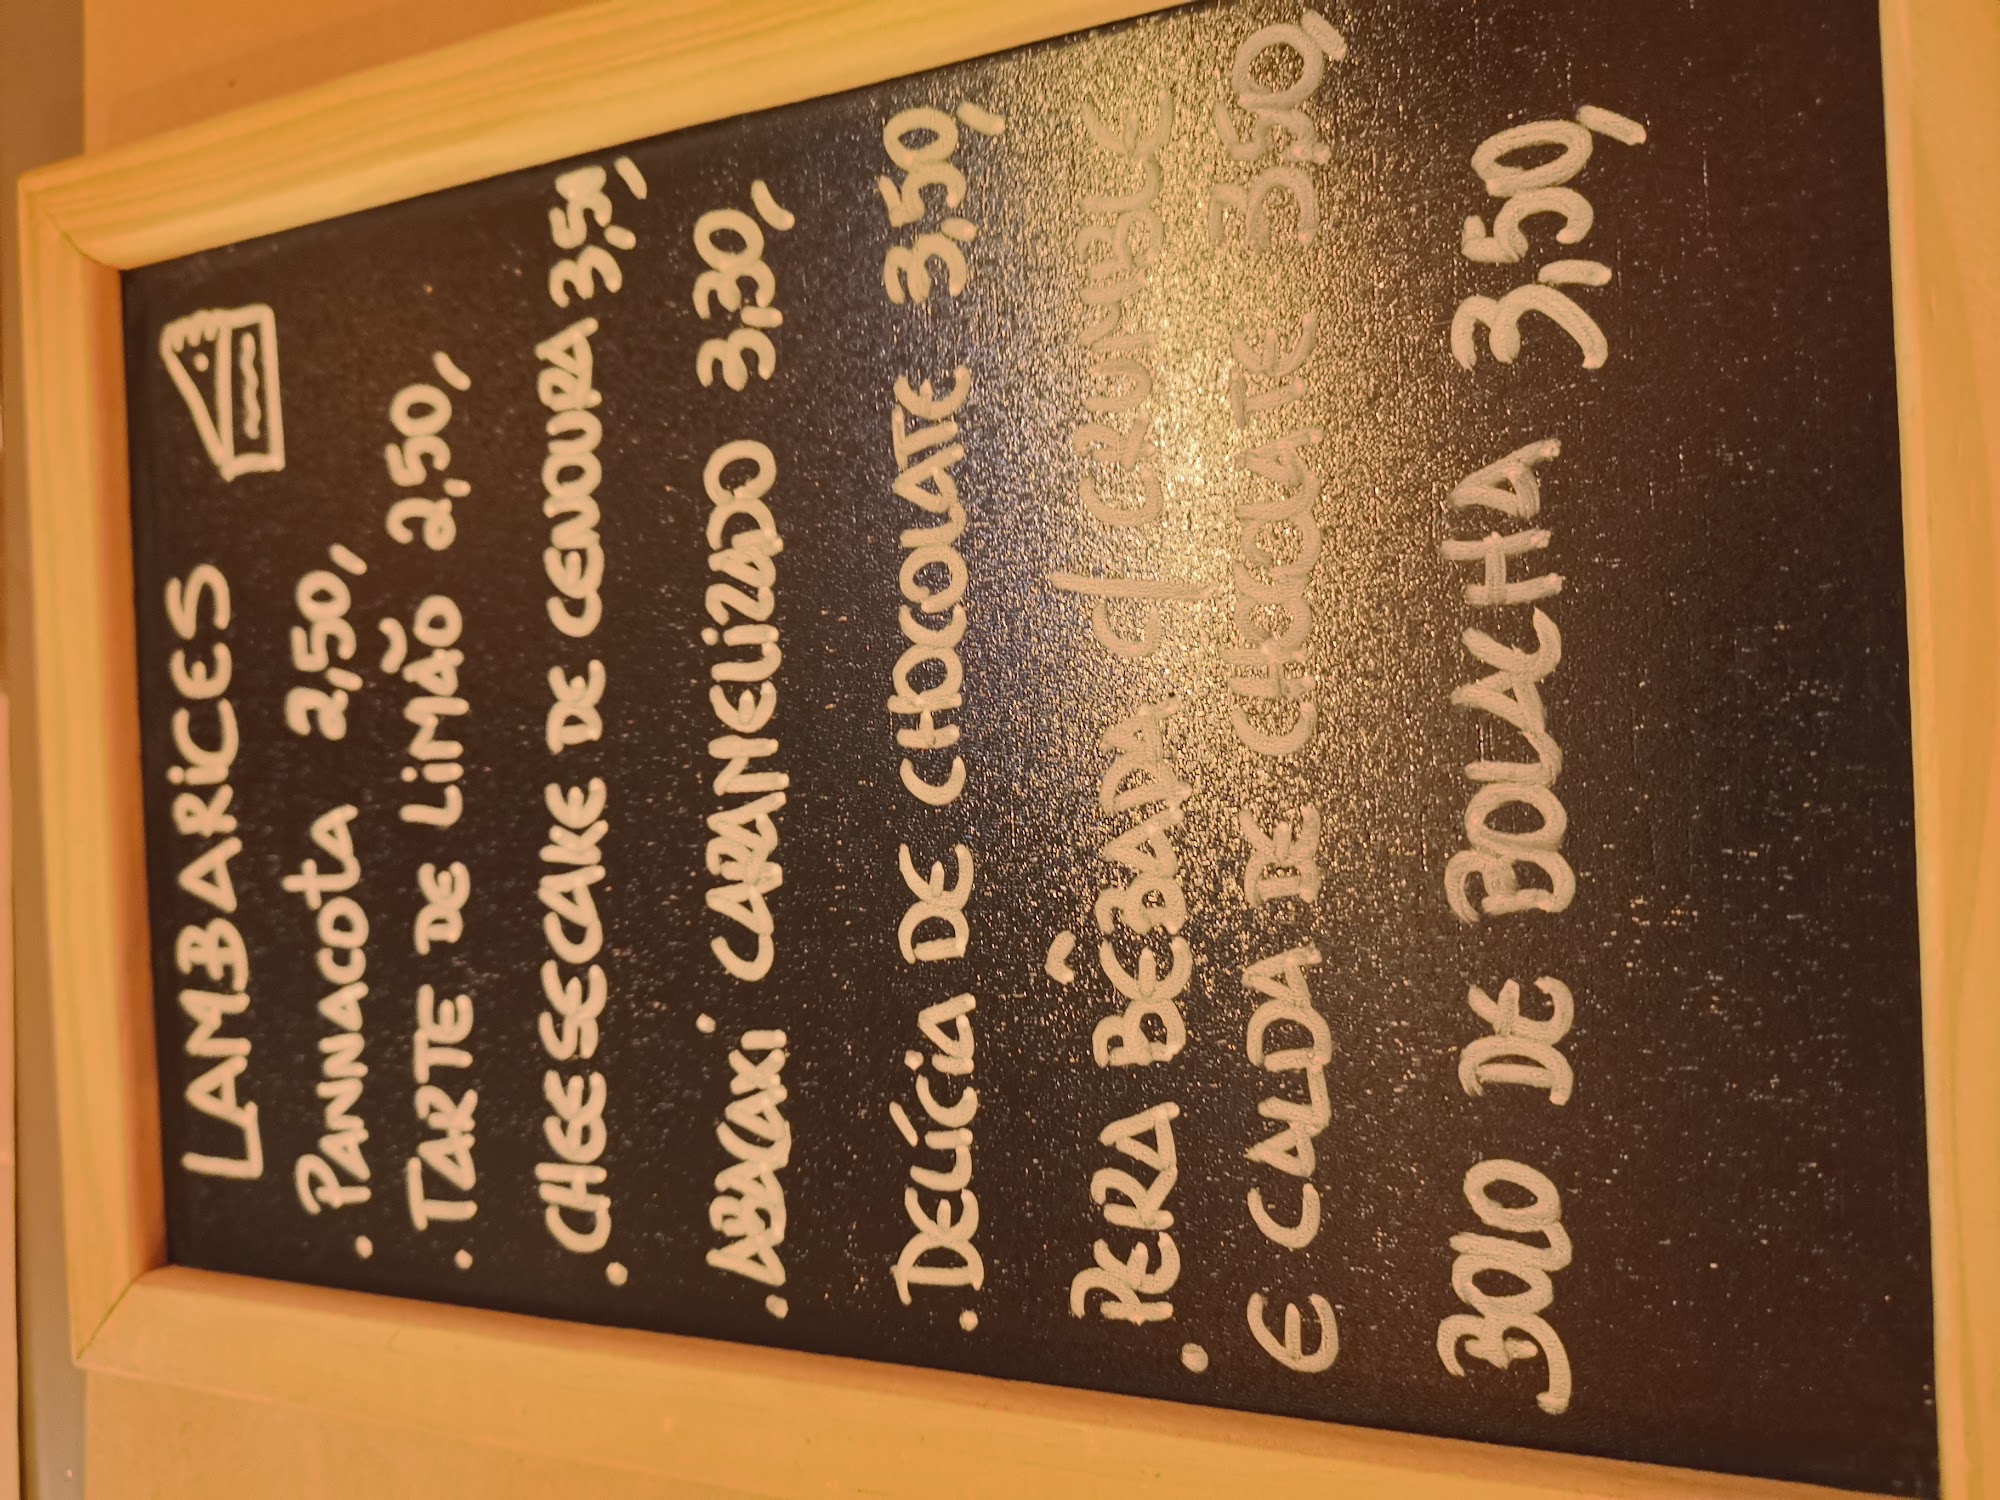 LAMBARiCES
. PANNACOTA 2,50,
. TARTE DE LiMÃO 2,50,
. CHEESECAKE DE CENOURA 3,50,
. ABACAXÍ CARAMELiZADO 3,30,
. DELÍCiA DE CHOCOLATE 3,50,
. PERA BÊBADA C/ CRUMBLE
E CALDA DE CHOCOLATE 3,50,
BOLO DE BOLACHA 3,50,